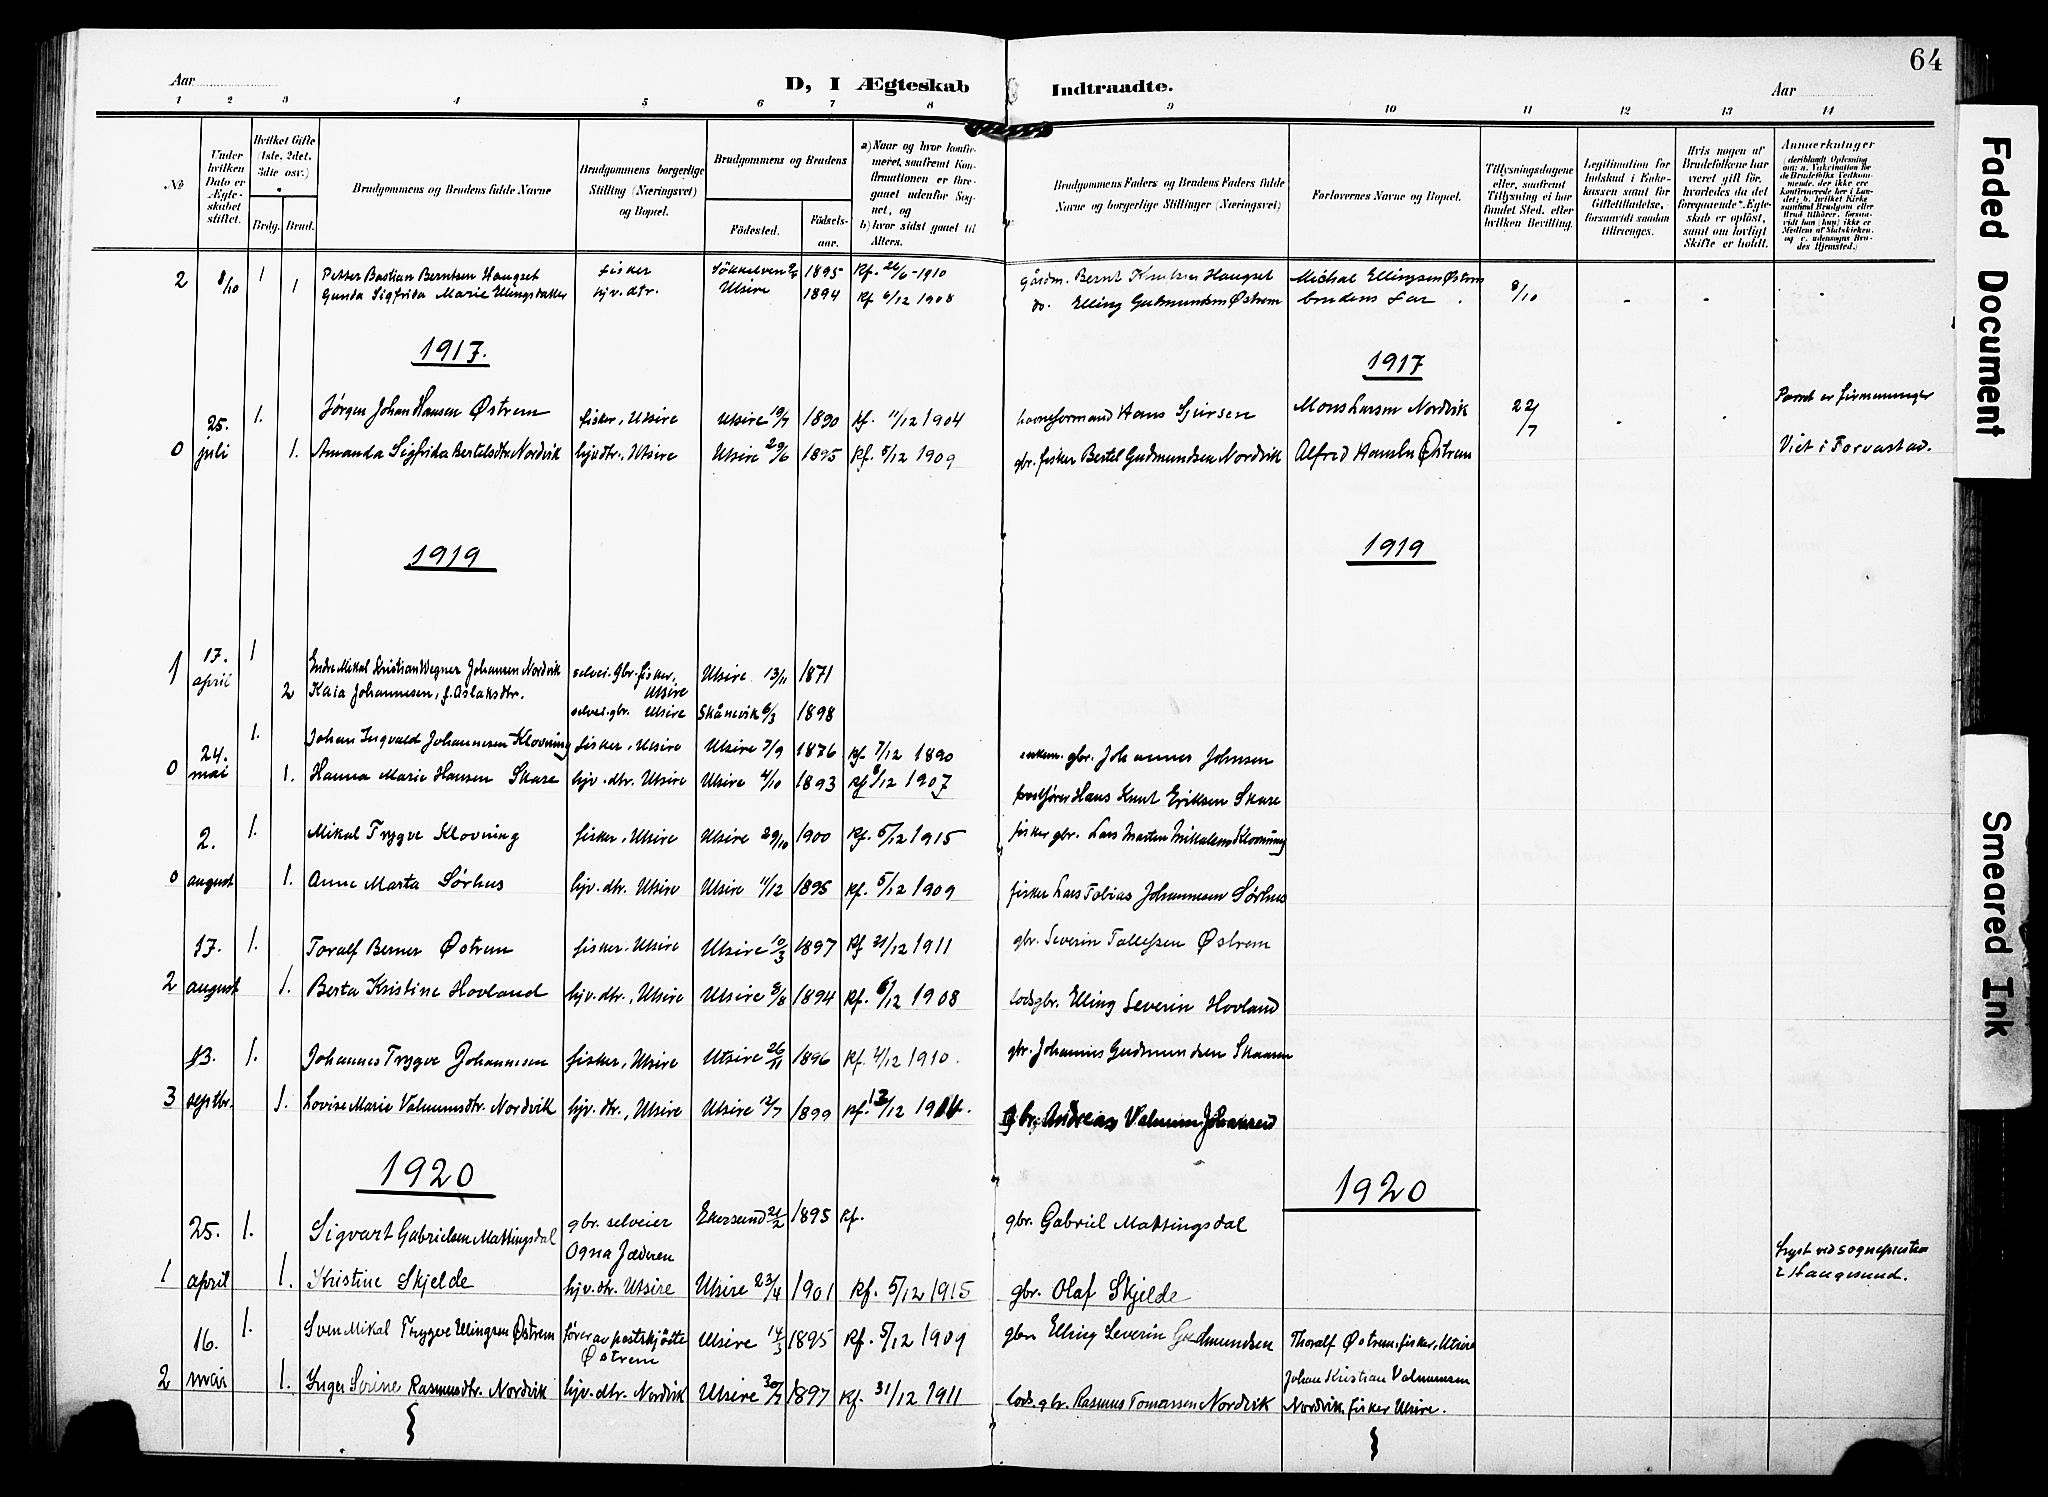 64
Aar D, I Ægteskab Indtraadte. Aar
1 2 3 4 5 6 7 8 9 10 11 12 13 14
No
Under hvilken Dato er Ægteskabet stiftet.
Hvilket Gifte (1ste, 2det, 3die osv.)
Brdg. Brud.
Brudgommens og Brudens fulde Navne
Brudgommens borgerlige Stilling (Næringsvei) og Bopæl.
Brudgommens og Brudens
Fødested. Fødselsaar.
a) Naar og hvor konfirmeret, saafremt Konfirmationen er foregaaet udenfor Sognet, og
b) hvor sidst gaaet til Alters.
Brudgommens Faders og Brudens Faders fulde Navne og borgerlige Stillinger (Næringsvei)
Forlovernes Navne og Bopæl.
Tillysningsdagene eller, saafremt Tillysning ei har fundet Sted, efter hvilken Bevilling.
Legitimation for Indskud i Enkekassen samt for Giftetilladelse, forsaavidt saadan tiltrænges.
Hvis nogen af Brudefolkene har været gift før, hvorledes da det foregaaende Ægteskab er opløst, samt om lovligt Skifte er holdt.
Anmærkninger
2 8/10 1 Petter Bastian Berntsen Haugset fisker Søkkelven 1895 Kf. 26/6-1910 gårdm. Bernt Knutsen Haugset Michal Ellingsen Østrem 8/10
1 Gunda Sigfrida Marie Ellingsdatter hjv. dtr. Utsire 1894 Kf 6/12 1908 do. Elling Gudmundsen Østrem brudens far
1917. 1917
25. 1. Jørgen Johan Hansen Østrem fisker, Utsire Utsire 19/7 1890 kf. 11/12 1904 havneformand Hans Sjursen Mons Larsen Nordvik 22/7
0 juli 1. Amanda Sigfrida Bertelsdtr Nordvik hjv.dtr., Utsire Utsire 29/6 1895 Kf. 5/12 1909 gbr. fisker Bertel Gudmundsen Nordvik Alfred Hansen Østrem Viet i Torvastad.
1919 1919
1 17. april 1 Endre Mikal Kristian Wegner Johansen Nordvik selvei. gbr. fisker, Utsire Utsire 13/11 1871
2 Kaia Johannesen, f. Aslaksdtr. selvei. gbr. Utsire Skånevik 6/3 1898
0 24. mai 1. Johan Ingvald Johannesen Klovning fisker, Utsire Utsire 7/9 1876 kf. 7/12 1890 gbr. Johannes Johnsen
1. Hanna Marie Hansen Skare hjv. dtr. Utsire Utsire 4/10 1893 kf 8/12 1907 postfører Hans Knut Eriksen Skare
2. 1. Mikal Trygve Klovning fisker, Utsire Utsire 29/10 1900 Kf. 5/12 1915 fisker gbr. Lars Marten Mikkelsen Klovning
0 august 1. Anne Marta Sørhus hjv. dtr. Utsire Utsire 11/12 1895 kf. 5/12 1909 fisker Lars Tobias Johannesen Sørhus
17. 1. Toralf Berner Østrem fisker, Utsire Utsire 10/3 1897 Kf 31/12 1911 gbr. Severin Tollefsen Østrem
2 august 1. Berta Kristine Hovland hjv. dtr., Utsire Utsire 8/8 1894 Kf. 6/12 1908 lodsgbr. Elling Severin Hovland
13. 1. Johannes Trygve Johannesen fisker, Utsire Utsire 26/11 1896 Kf. 4/12 1910. gbr. Johannes Gudmundsen Skaaren
3 septbr. 1. Lovise Marie Valnumsdtr. Nordvik hjv. dtr., Utsire Utsire 12/7 1899 kf. 13/12 1914. gbr. Andreas Valnum Johansen
1920 1920
25. 1. Sigvart Gabrielsen Mattingsdal gbr. selveier Ogna Jæderen Ekersund 21/2 1895 Kf. gbr. Gabriel Mattingsdal
1 april 1. Kristine Skjelde hjv. dtr. Utsire Utsire 23/4 1901 Kf. 5/12 1915 gbr. Olaf Skjelde Lyst ved sognepresten i Haugesund.
16. 1. Sven Mikal Trygve Ellingsen Østrem fører av postskjøite Østrem Utsire 14/3 1895 Kf. 5/12 1909 gbr. Elling Severin Gudmundsen Thoralf Østrem, fisker, Utsire
2 mai 1. Inger Serine Rasmusdtr. Nordvik hjv. dtr. Nordvik Utsire 30/7 1897 Kf. 31/12 1911 lods. gbr. Rasmus Tomassen Nordvik Johan Kristian Valnumsen Nordvik, fisker Utsire.
Faded Document
Smeared Ink